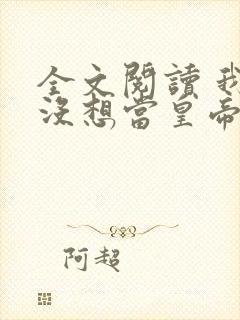 全文閱讀 我
沒想當皇帝
阿超